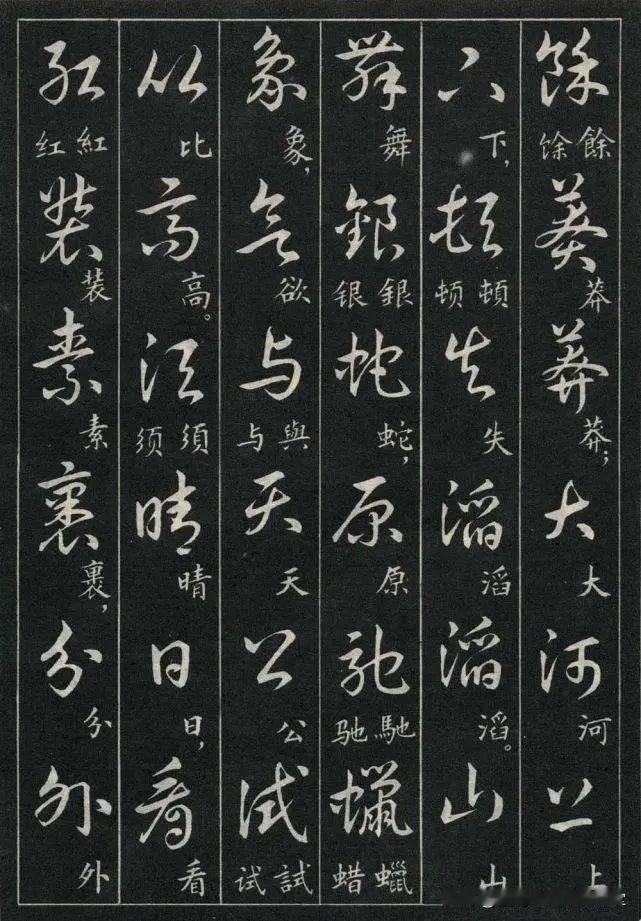 餘 餘 馀 莽 莽 莽 莽； 大 大 河 河 上 上
下 下， 頓 頓 顿 失 失 滔 滔 滔 滔。 山 山
舞 舞 銀 銀 银 蛇 蛇， 原 原 馳 馳 驰 蠟 蠟 蜡
象 象， 欲 欲 与 與 与 天 天 公 公 試 試 试
比 比 高 高。 須 須 须 晴 晴 日 日， 看 看
紅 紅 红 装 装 素 素 裹 裹， 分 分 外 外